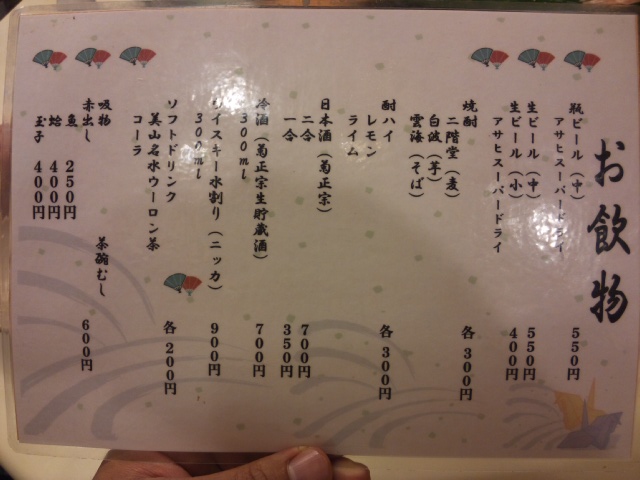 お飲物
瓶ビール（中）
アサヒスーパードライ
５５０円
生ビール（中）
５５０円
生ビール（小）
４００円
アサヒスーパードライ
焼酎
二階堂（麦）
各３００円
白波（芋）
雲海（そば）
酎ハイ
レモン
各３００円
ライム
日本酒（菊正宗）
二合
７００円
一合
３５０円
冷酒（菊正宗生貯蔵酒）
３００ｍｌ
７００円
ウイスキー水割り（ニッカ）
３００ｍｌ
９００円
ソフトドリンク
美山名水ウーロン茶
各２００円
コーラ
吸物
茶碗むし
赤出し
６００円
魚
２５０円
蛤
４００円
玉子
４００円